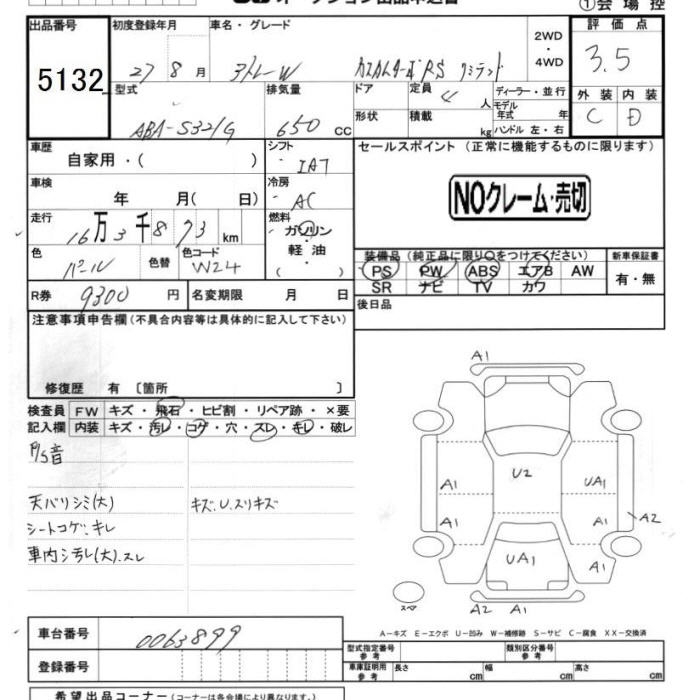 ①会場控
出品番号 初度登録年月 車名・グレード 2WD・4WD 評価点
5132 27 8月 アトレーW カスタムターボRS リミテッド 3.5
型式 排気量 ドア 定員 人 ディーラー・並行 外装 内装
ABA-S321G 650 cc 形状 積載 kg モデル年式 年 ハンドル 左・右 C D
車歴 シフト セールスポイント (正常に機能するものに限ります)
自家用・( ) IAT
NOクレーム・売切
車検 冷房
年 月( 日) AC
走行 燃料
16万3千873 km ガソリン・軽油 ( )
色 色替 色コード 装備品 (純正品に限り〇をつけてください) 新車保証書
パール W24 PS PW ABS エアB AW 有・無
SR ナビ TV カワ
R券 9300 円 名変期限 月 日 後日品
注意事項申告欄 (不具合内容等は具体的に記入して下さい)
修復歴 有 〔箇所 〕
検査員 FW キズ・飛石・ヒビ割・リペア跡・×要
記入欄 内装 キズ・汚レ・コゲ・穴・スレ・キレ・破レ
P/S音
天バリシミ(大) キズ.U.スリキズ
シートコゲ.キレ
車内シ汚レ(大).スレ
A1
U2
A1 UA1
A1 A1 A2
UA1
スペア A2 A1
A−キズ E−エクボ U−凹み W−補修跡 S−サビ C−腐食 XX−交換済
車台番号 0063899
型式指定番号 参考 類別区分番号 参考
登録番号 車庫証明用 参考 長さ cm 幅 cm 高さ cm
希望出品コーナー (コーナーは各会場により異なります。)